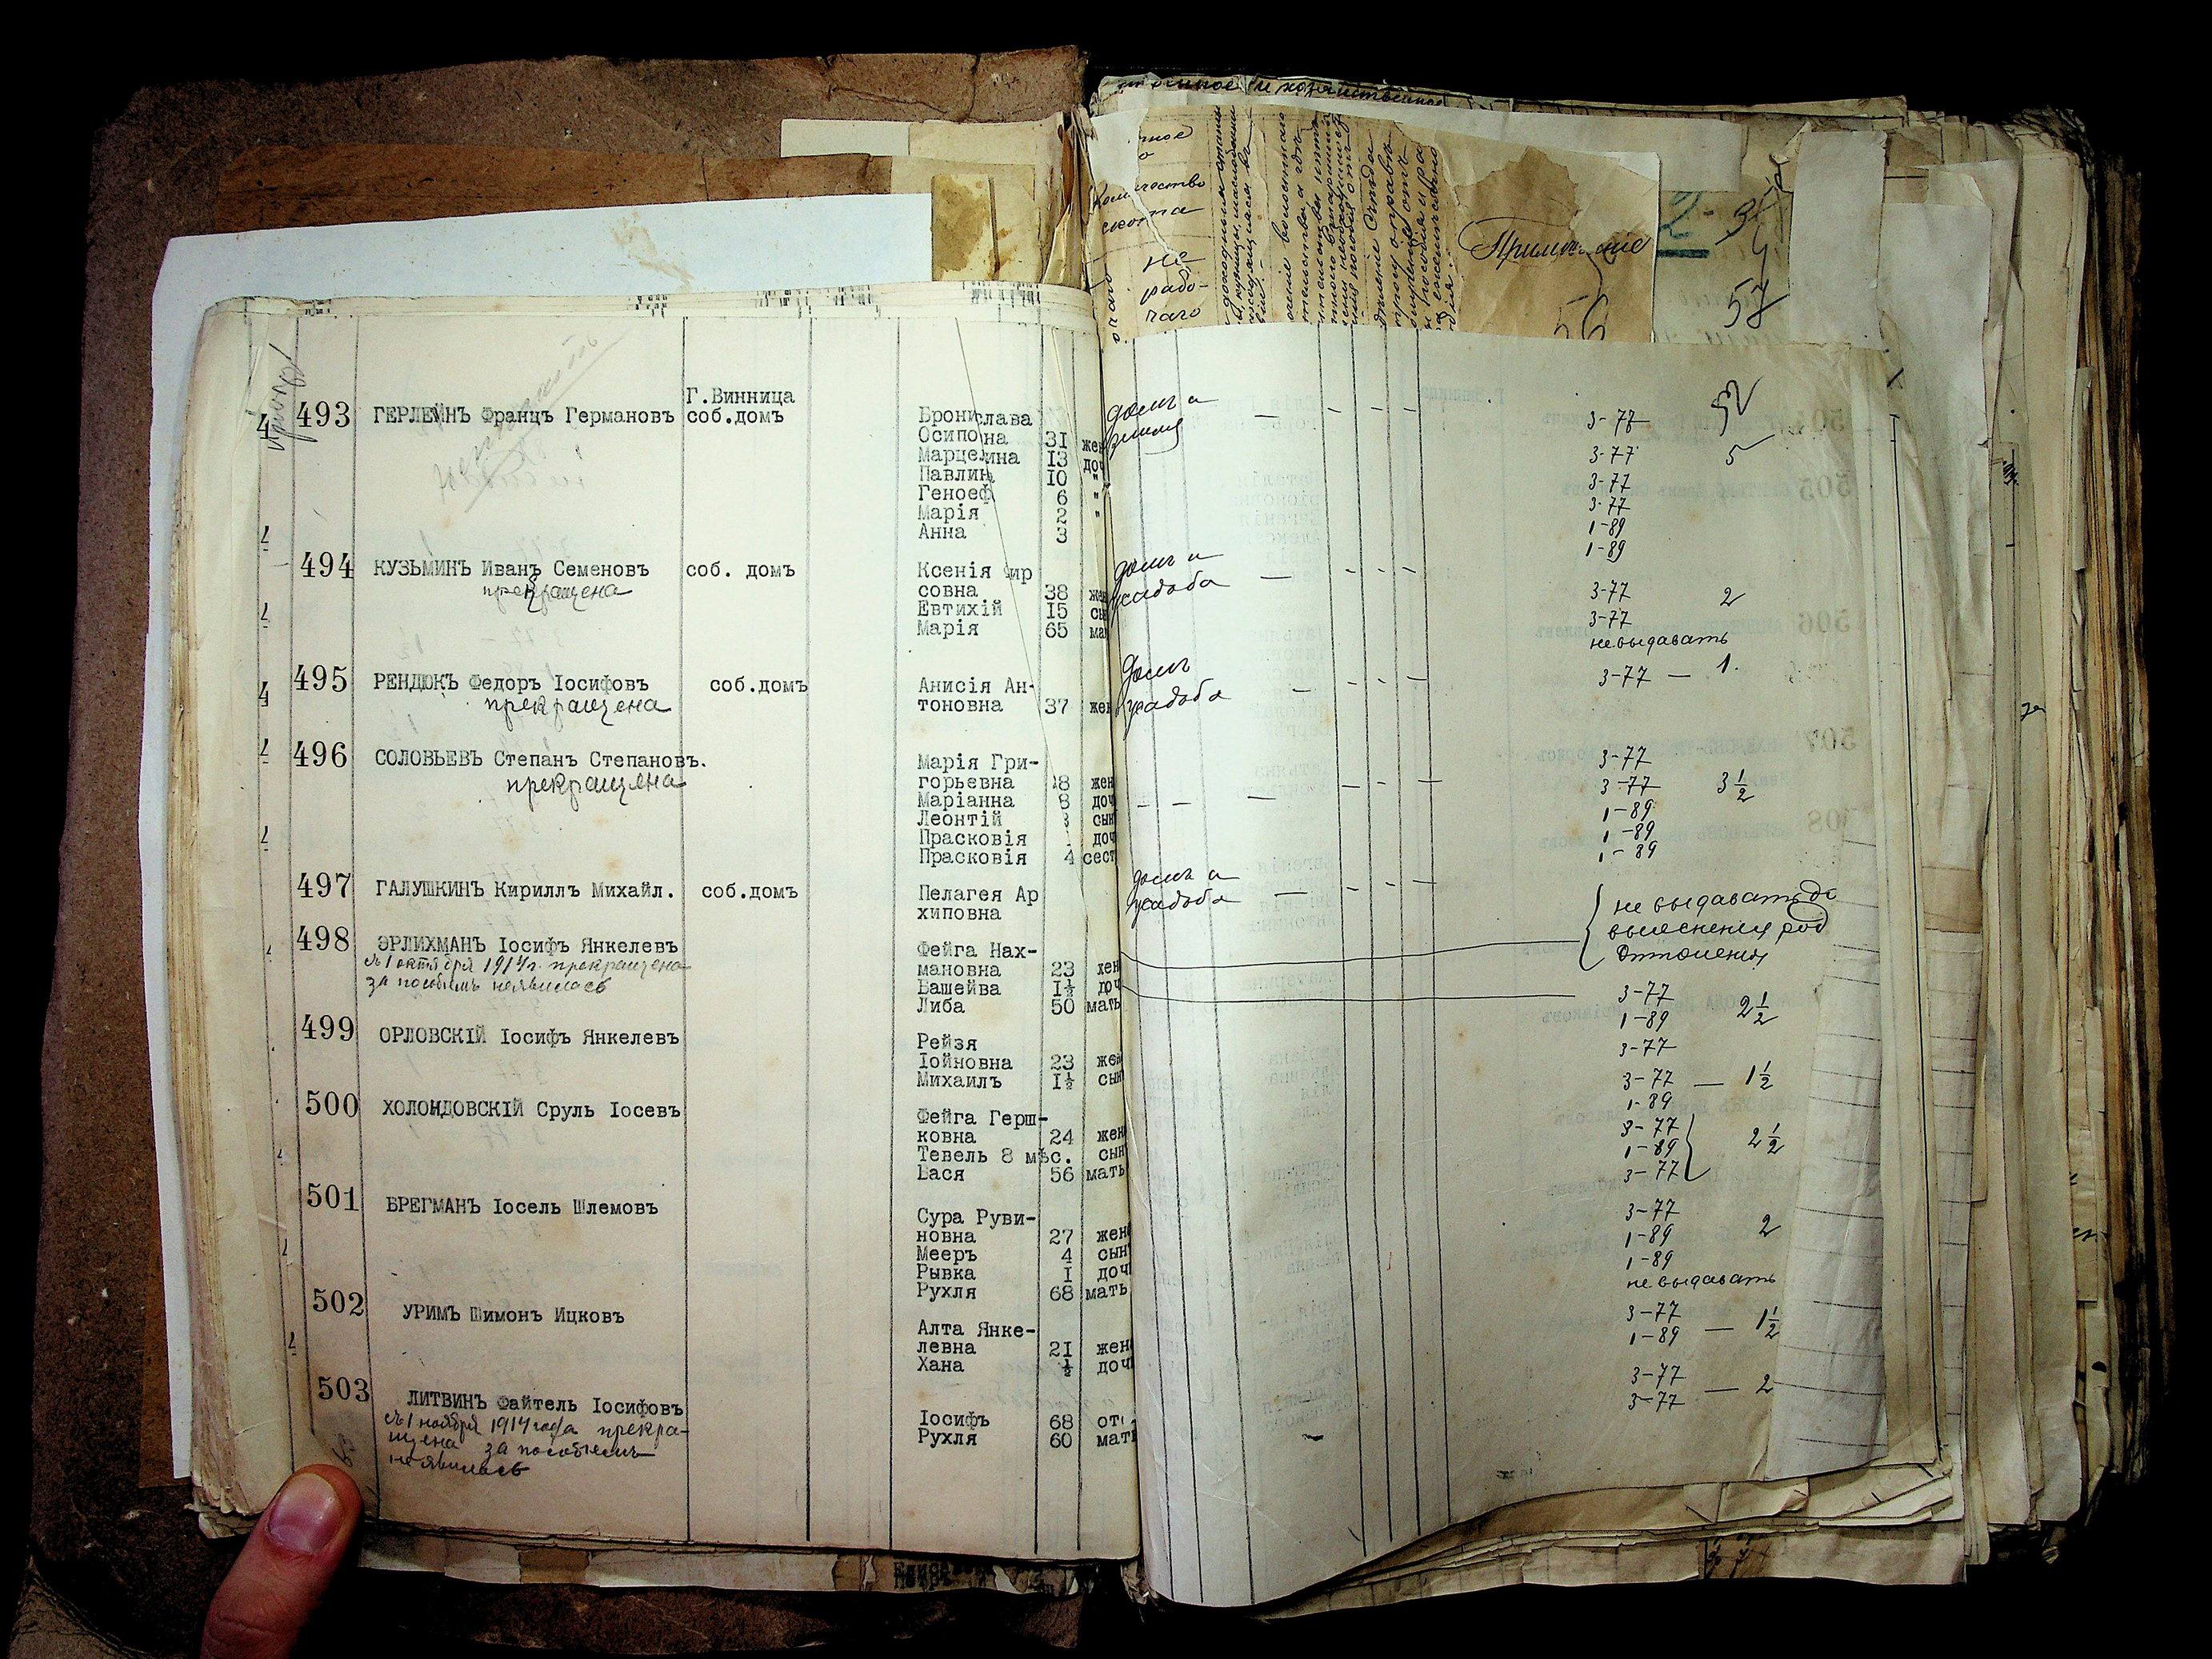 Количество
скота
не
радо-
чаго
Примѣчаніе
56
57
493 ГЕРЛЕЙНЪ Францъ Германовъ Г.Винница
соб.домъ
Бронислава
Осипо на 31 жен
Марце ина 13 доч
Павлин 10 "
Геноеф 6 "
Марія 2 "
Анна 3
домъ и
земля
3-77
3-77 5
3-77
3-77
1-89
1-89
494 КУЗЬМИНЪ Иванъ Семеновъ соб. домъ
прекращена
Ксенія Фир
совна 38 жен
Евтихій 15 сы
Марія 65 ма
домъ и
усадьба
3-77 2
3-77
не выдавать
495 РЕНДЮКЪ Федоръ Іосифовъ соб.домъ
прекращена
Анисія Ан-
тоновна 37 жен
домъ
усадьба
3-77 — 1.
496 СОЛОВЬЕВЪ Степанъ Степановъ.
прекращена
Марія Гри-
горьевна 8 жен
Маріанна 8 доч
Леонтій сын
Прасковія доч
Прасковія 4 сест
3-77
3-77 3 1/2
1-89
1-89
1-89
497 ГАЛУШКИНЪ Кириллъ Михайл. соб.домъ
Пелагея Ар
хиповна
домъ и
усадьба
не выдавать до
выясненія род
отношенія
498 ЭРЛИХМАНЪ Іосифъ Янкелевъ
съ 1 октября 1914 г. прекращена
за пособіемъ неявилась
Фейга Нах-
мановна 23 жен
Башейва 1½ доч
Либа 50 мать
3-77
1-89 2 1/2
3-77
499 ОРЛОВСКІЙ Іосифъ Янкелевъ
Рейзя
Іойновна 23 жен
Михаилъ 1½ сын
3-77 — 1 1/2
1-89
500 ХОЛОНДОВСКІЙ Сруль Іосевъ
Фейга Герш-
ковна 24 жен
Тевель 8 мѣс. сын
Бася 56 мать
3-77
1-89 2 1/2
3-77
501 БРЕГМАНЪ Іосель Шлемовъ
Сура Руви-
новна 27 жен
Мееръ 4 сын
Рывка 1 доч
Рухля 68 мать
3-77
1-89 2
1-89
не выдавать
502 УРИМЪ Шимонъ Ицковъ
Алта Янке-
левна 21 жен
Хана ½ доч
3-77
1-89 — 1 1/2
503 ЛИТВИНЪ Файтель Іосифовъ
съ 1 ноября 1914 года прекра-
щена за пособіемъ
неявилась
Іосифъ 68 оте
Рухля 60 мать
3-77
3-77 — 2